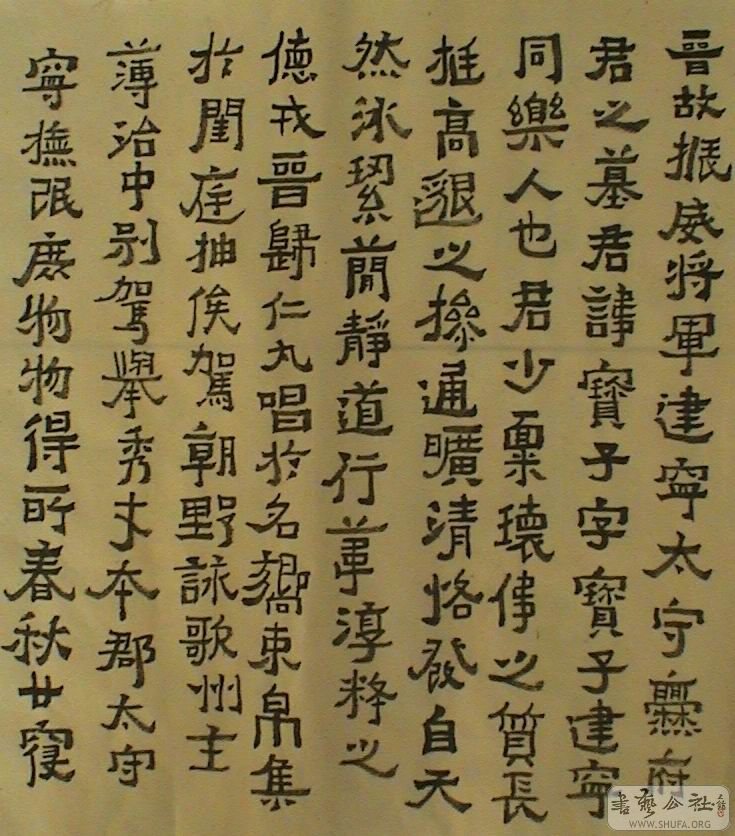 晉故振威将軍建寧太守爨府
君之墓君諱寶子字寶子建寧
同樂人也君少稟瓌偉之質長
挺高邈之操通曠清恪發自天
然冰絜簡靜道行葦淳粹之
德戎晉歸仁九唱於名嚮束帛集
於閨庭抽俟駕朝野詠歌州主
薄治中别駕舉秀才本郡太守
寧撫氓庶物物得所春秋廿寢
書藝公社
WWW.SHUFA.ORG